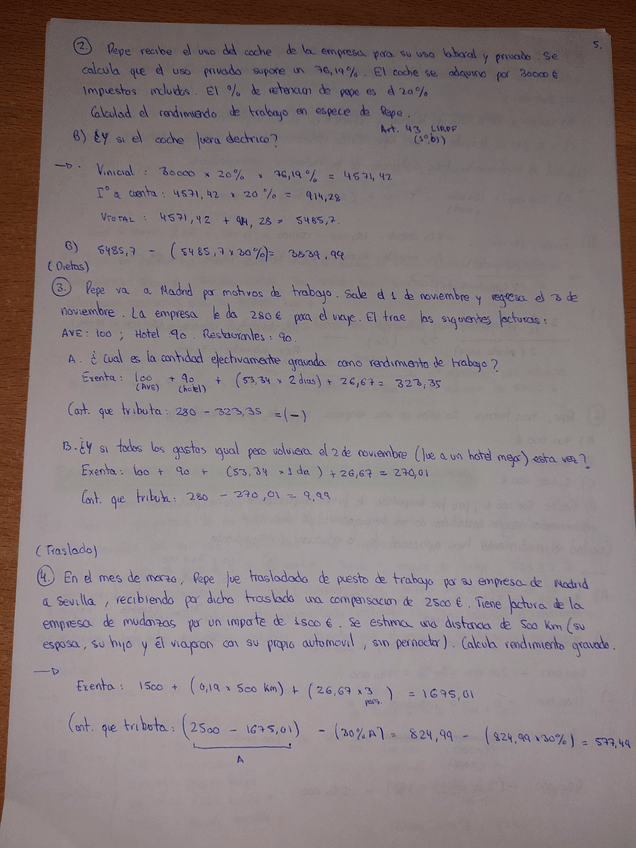 5.
2. Pepe recibe el uso del coche de la empresa para su uso laboral y privado. Se
calcula que el uso privado supone un 76,19%. El coche se adquirio por 30000 €
Impuestos incluidos. El % de retencion de pepe es el 20%
Calculad el rendimiento de trabajo en especie de Pepe.
Art. 43 LIRPF
(1º, b1)
B) ¿Y si el coche fuera electrico?
Vinicial : 30000 x 20% x 76,19% = 4571,42
Iº a cuenta : 4571,42 x 20% = 914,28
VTOTAL : 4571,42 + 914,28 = 5485,7.
B) 5485,7 - (5485,7 x 30%) = 3839,99
(Dietas)
3. Pepe va a Madrid por motivos de trabajo. Sale el 1 de noviembre y regresa el 3 de
noviembre. La empresa le da 280€ para el viaje. El trae las siguientes facturas :
AVE: 100 ; Hotel 90. Restaurantes : 90.
A. ¿Cual es la cantidad efectivamente gravada como rendimiento de trabajo?
Exenta : 100 + 90 + (53,34 x 2 dias) + 26,67 = 323,35
(AVE) (hotel)
Cant. que tributa : 280 - 323,35 = (-)
B. ¿Y si todos los gastos igual pero volviera el 2 de noviembre (fue a un hotel mejor) esta vez?
Exenta : 100 + 90 + (53,34 x 1 dia) + 26,67 = 270,01
Cant. que tributa : 280 - 270,01 = 9,99
(Traslado)
4. En el mes de marzo, Pepe fue trasladado de puesto de trabajo por su empresa de Madrid
a Sevilla, recibiendo por dicho traslado una compensacion de 2500 €. Tiene factura de la
empresa de mudanzas por un importe de 1500 €. Se estima una distancia de 500 km (su
esposa, su hijo y él viajaron con su propio automovil, sin pernoctar). Calcula rendimiento gravado.
Exenta : 1500 + (0,19 x 500 km) + (26,67 x 3 pers.) = 1675,01
Cant. que tributa : (2500 - 1675,01) - (30% A) = 824,99 - (824,99 x 30%) = 577,49
A